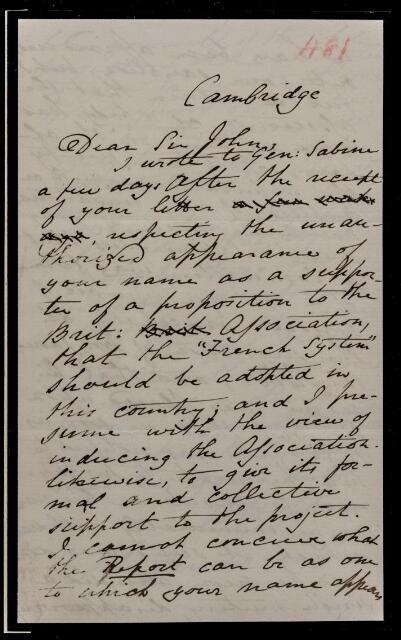 481
Cambridge
Dear Sir John,
I wrote to Gen: Sabine
a few days after the receipt
of your letter a few weeks
ago, respecting the unau-
thorized appearance of
your name as a suppor-
ter of a proposition to the
Brit: Brit. Association,
that the "French System"
should be adopted in
this country; and I pre-
sume with the view of
inducing the Association
likewise, to give its for-
mal and collective
support to the project.
I cannot conceive what
the Report can be as one
to which your name appears